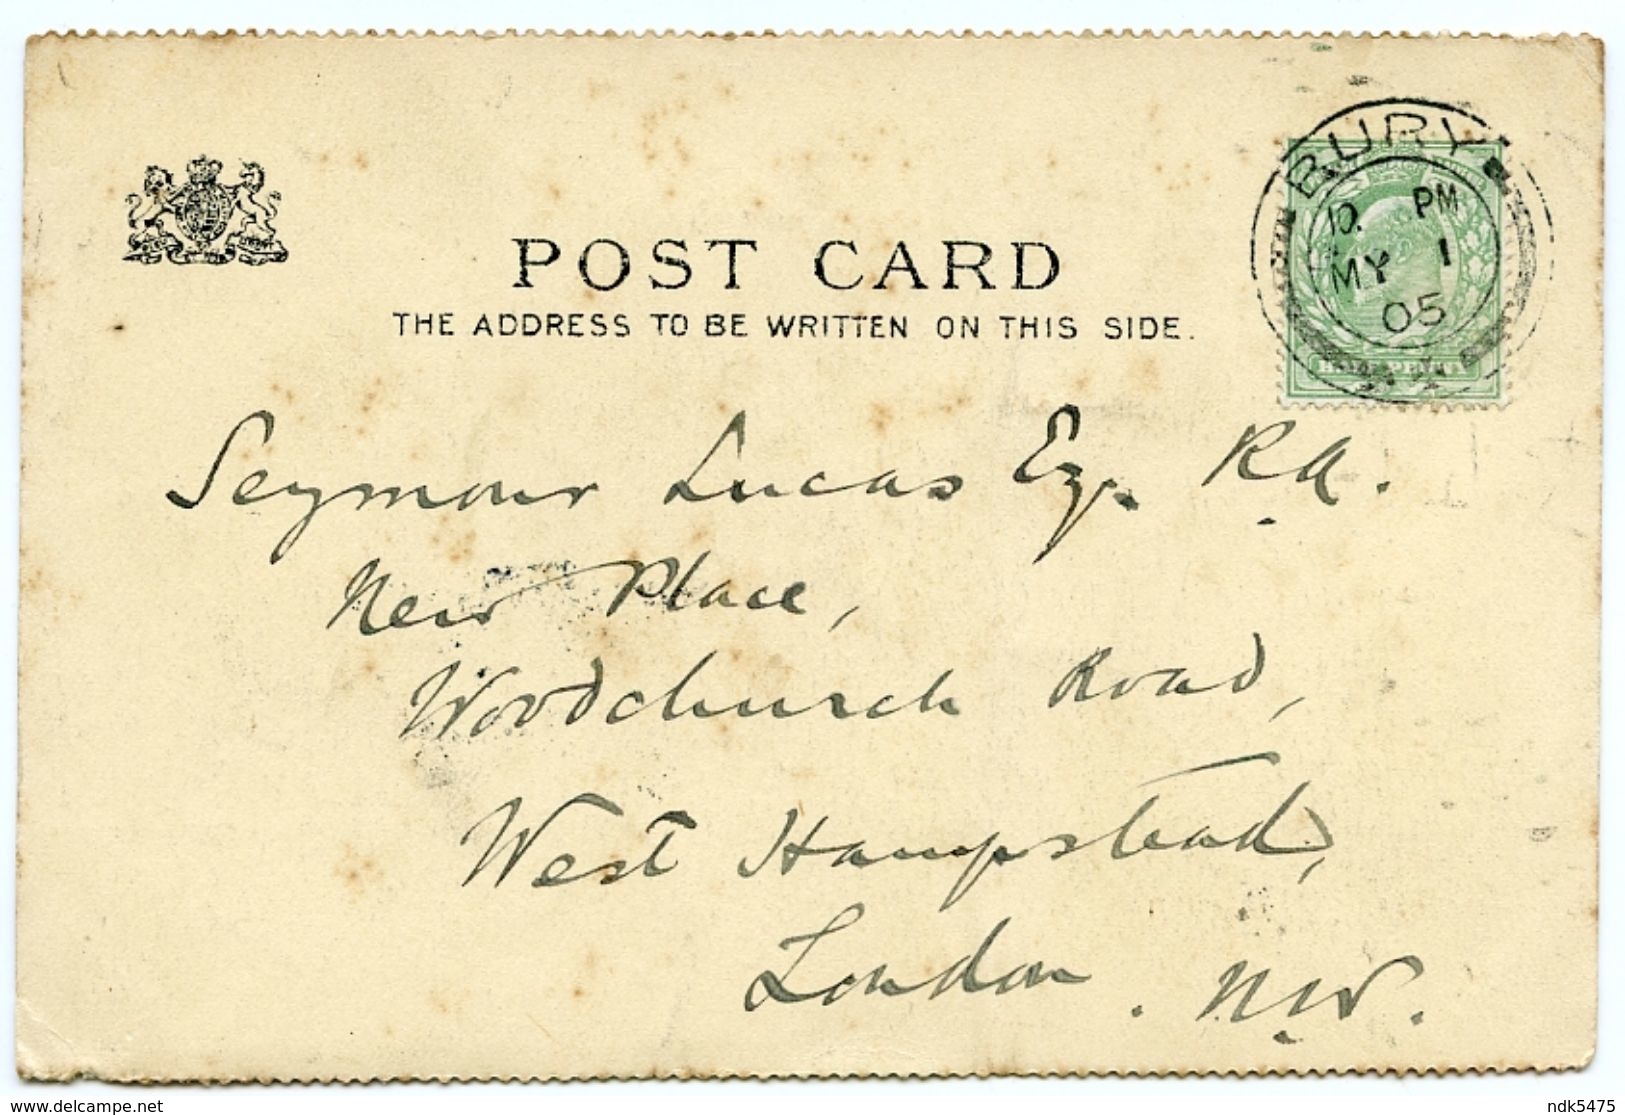 BURY
10. PM
MY 1
05
HALF PENNY
POST CARD
THE ADDRESS TO BE WRITTEN ON THIS SIDE.
Seymour Lucas Esq. R.A.
New Place,
Woodchurch Road,
West Hampstead,
London. N.W.
www.delcampe.net
ndk5475